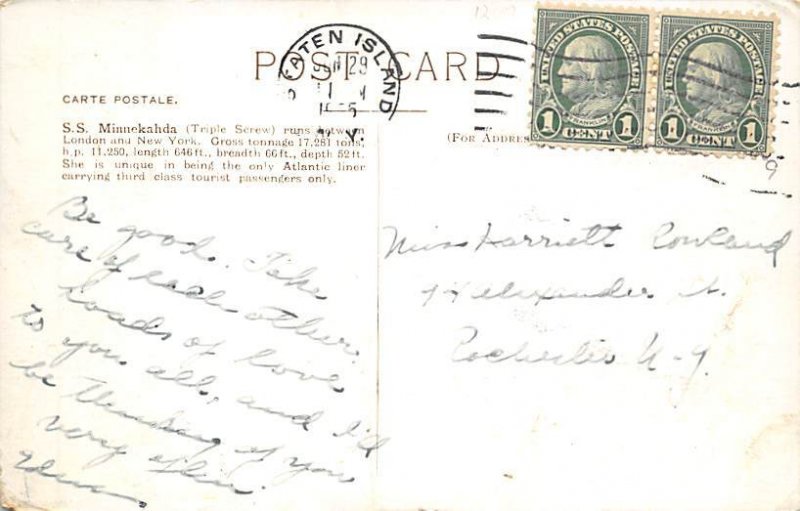 STATEN ISLAND
29
N. Y.
UNITED STATES POSTAGE
FRANKLIN
1 CENT 1
UNITED STATES POSTAGE
FRANKLIN
1 CENT 1
POST CARD
CARTE POSTALE.
S.S. Minnekahda (Triple Screw) runs between
London and New York. Gross tonnage 17,281 tons,
h.p. 11,250, length 646 ft., breadth 66 ft., depth 52 ft.
She is unique in being the only Atlantic liner
carrying third class tourist passengers only.
(FOR ADDRESS
Be good. Take
care of each other.
Loads of love
to you all, and I'll
be thinking of you
very often.
Miss Harriett Rowland
Alexander St.
Rochester N-Y